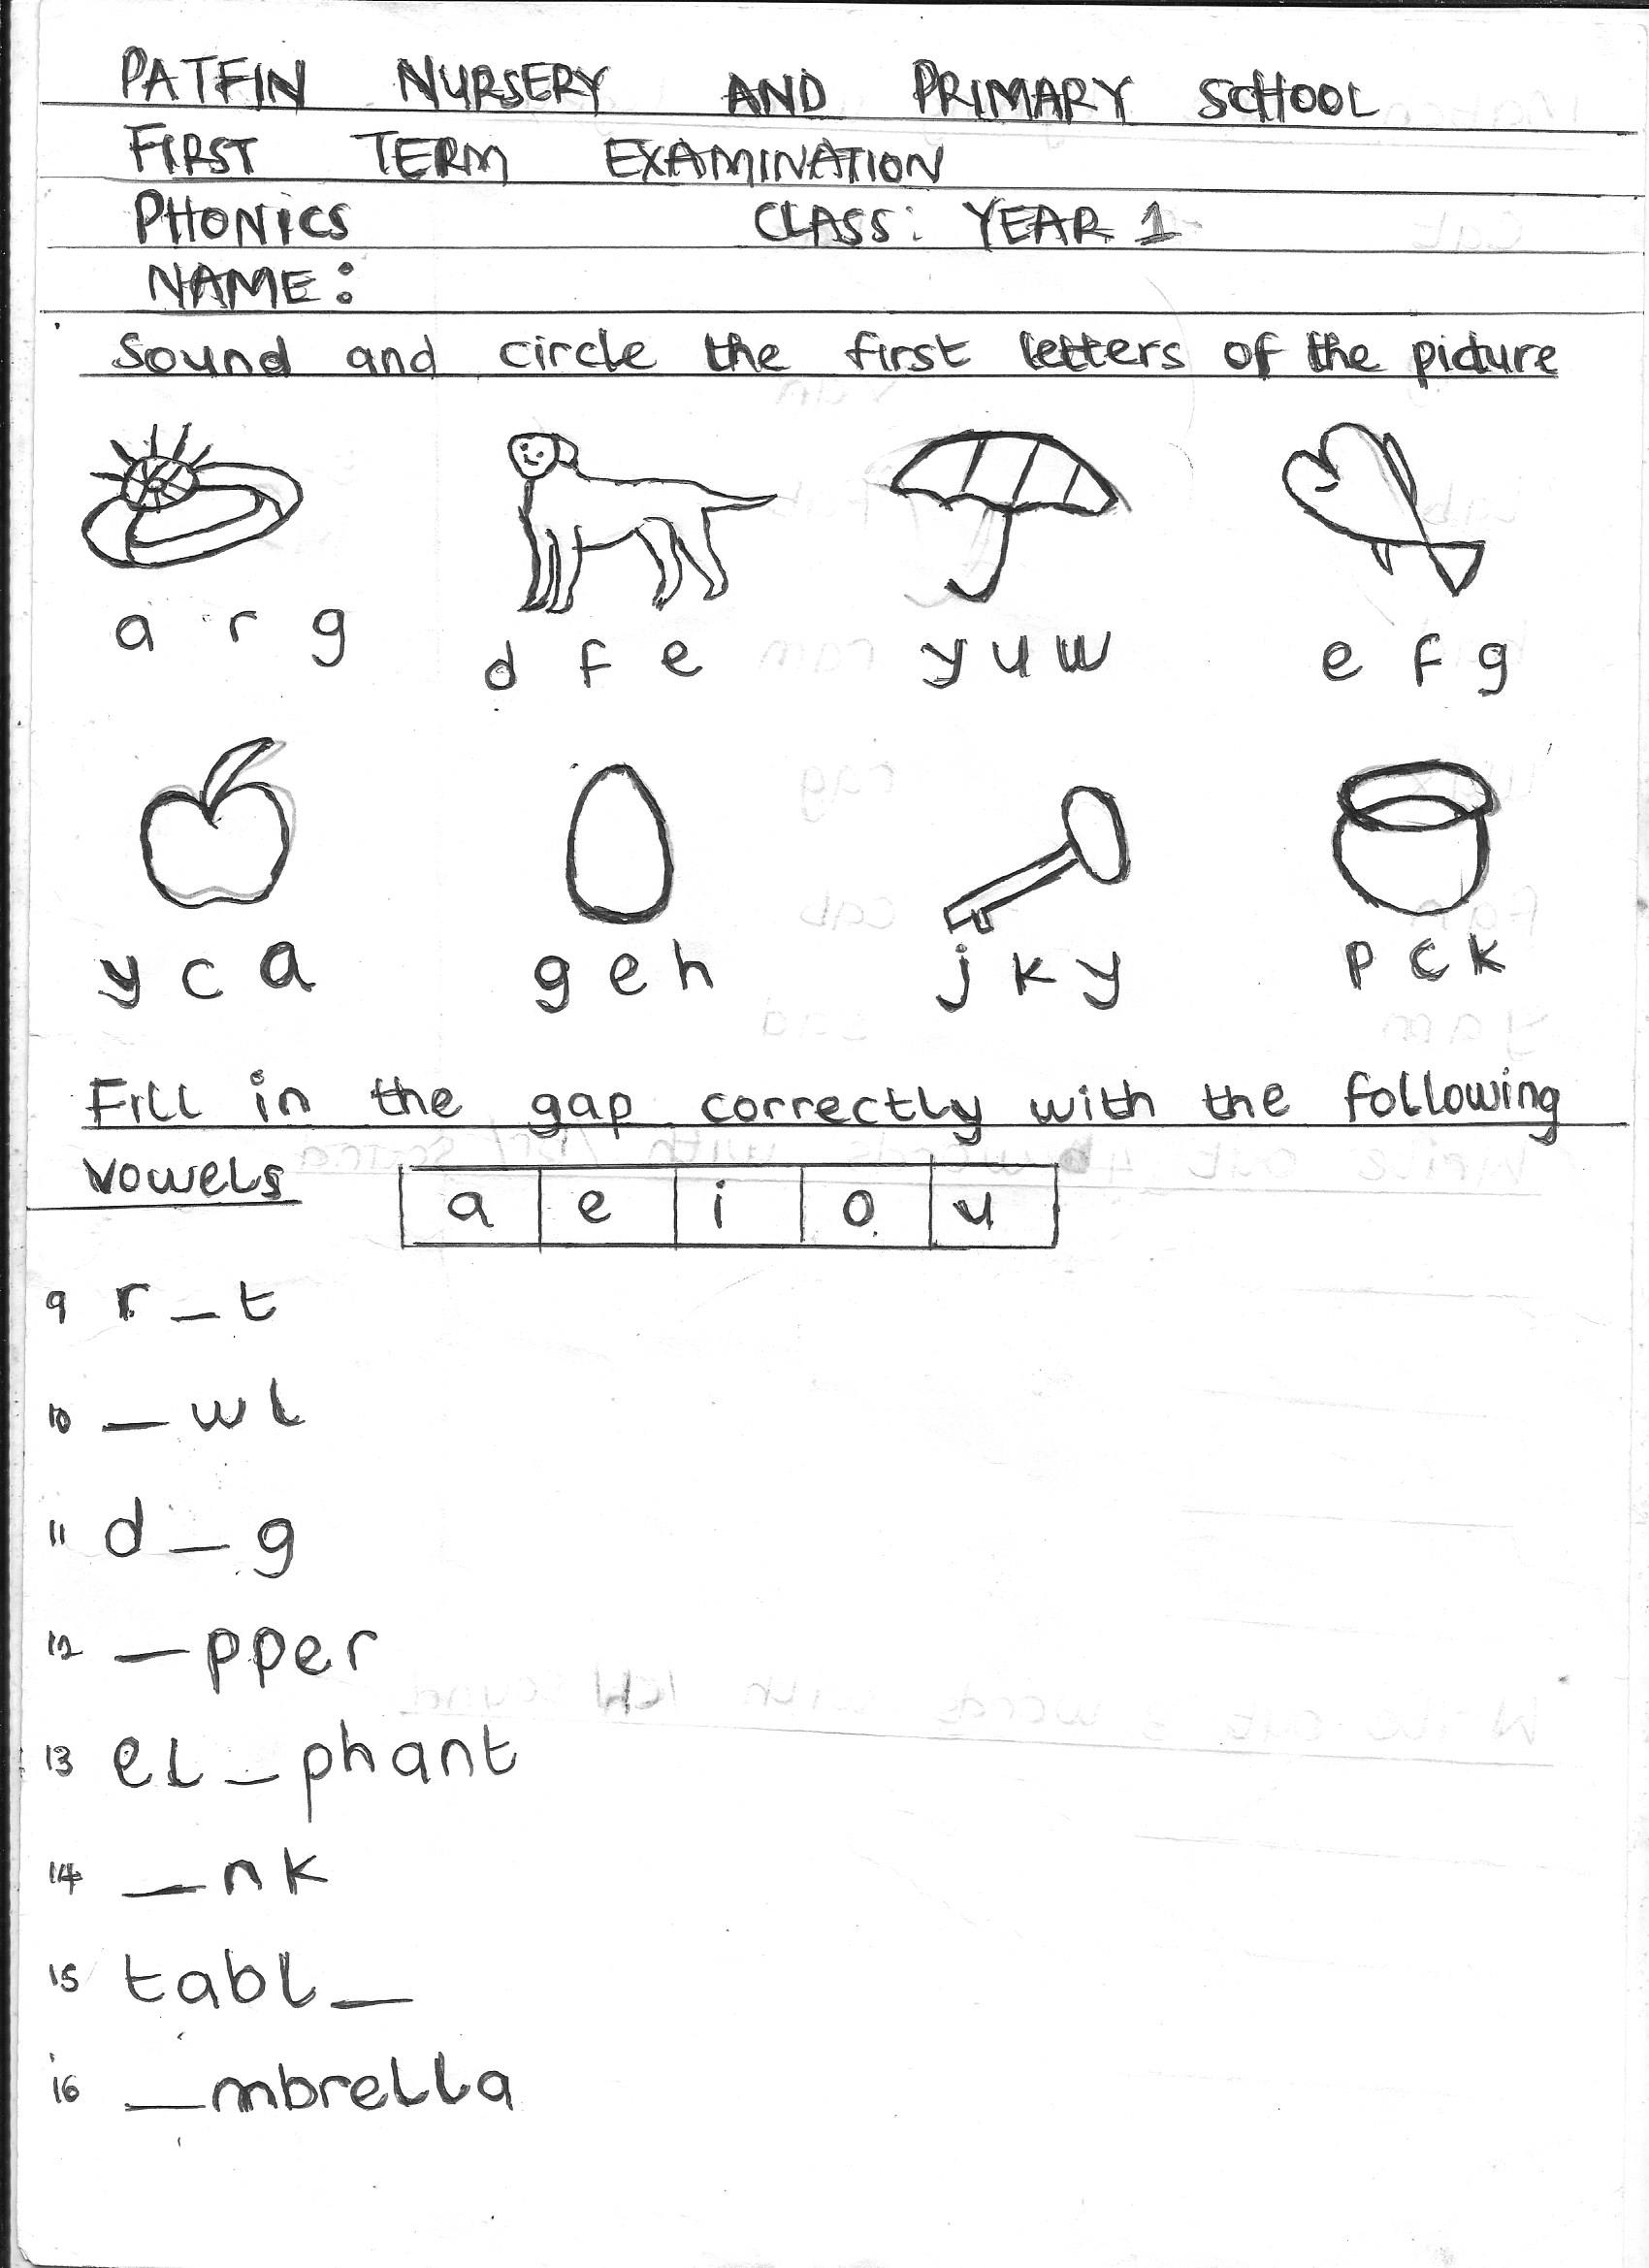 PATFIN NURSERY AND PRIMARY SCHOOL
FIRST TERM EXAMINATION
PHONICS CLASS: YEAR 1
NAME:
Sound and circle the first letters of the picture
a r g d f e y u w e f g
y c a g e h j k y p c k
Fill in the gap correctly with the following
vowels a e i o u
9 r_t
10 _wl
11 d_g
12 _pper
13 el_phant
14 _nk
15 tabl_
16 _mbrella